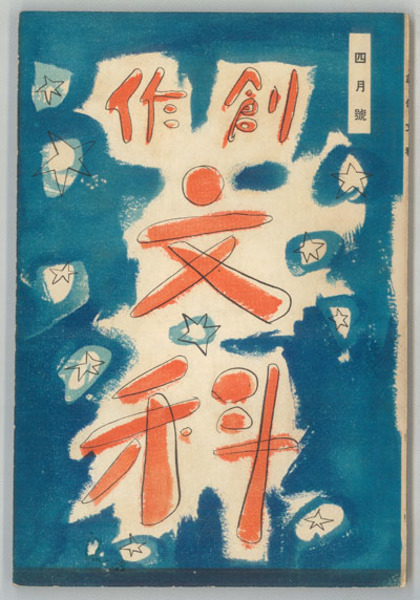 四月號
創作
文科